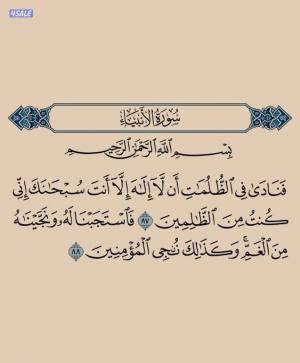 4SALE
سُورَةُ الأَنبِيَاءِ
بِسْمِ اللَّهِ الرَّحْمَٰنِ الرَّحِيمِ
فَنَادَىٰ فِي الظُّلُمَٰتِ أَن لَّا إِلَٰهَ إِلَّا أَنتَ سُبْحَٰنَكَ إِنِّي
كُنتُ مِنَ الظَّٰلِمِينَ ٨٧ فَاسْتَجَبْنَا لَهُ وَنَجَّيْنَٰهُ
مِنَ الْغَمِّ ۚ وَكَذَٰلِكَ نُـْۨجِي الْمُؤْمِنِينَ ٨٨